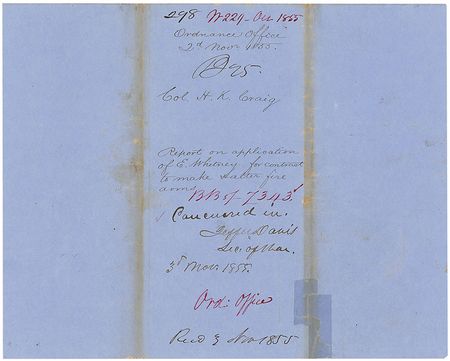 298 W-229-Oct 1855
Ordnance Office
2d Nov. 1855.
Col. H. K. Craig
Report on application
of E. Whitney for contract
to make fire
arms
Concurred in.
Jeffn Davis
Sec. of War.
3d Nov. 1855.
Ord: Office
Recd 3 Nov 1855